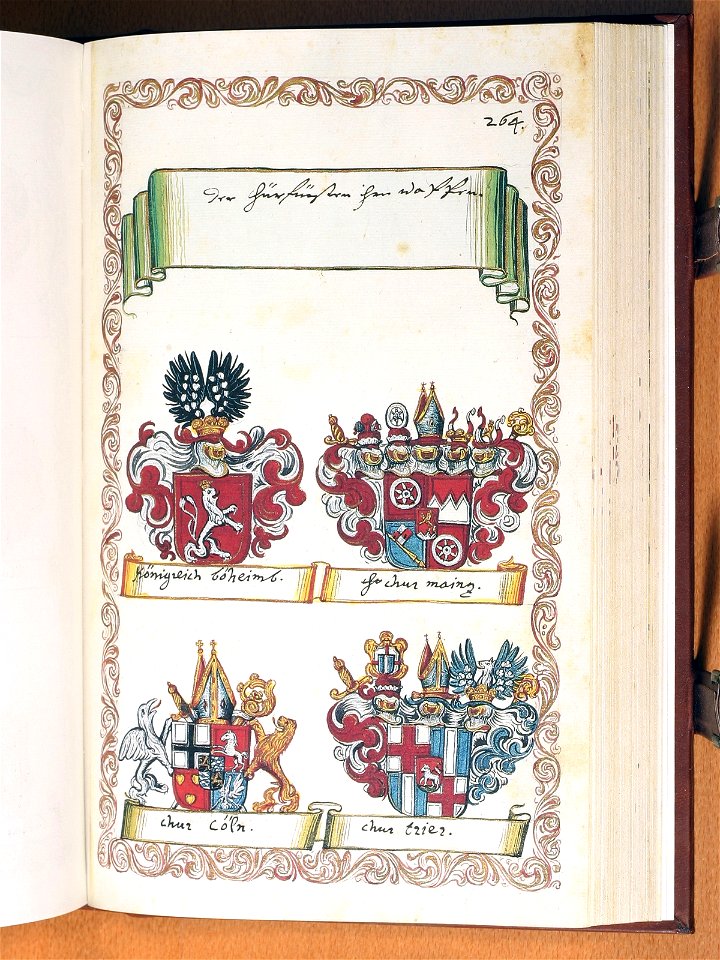 264.
der Chürfürsten ihre wappen.
Königreich böheimb.
chur mainz.
chur Cöln.
chur trier.